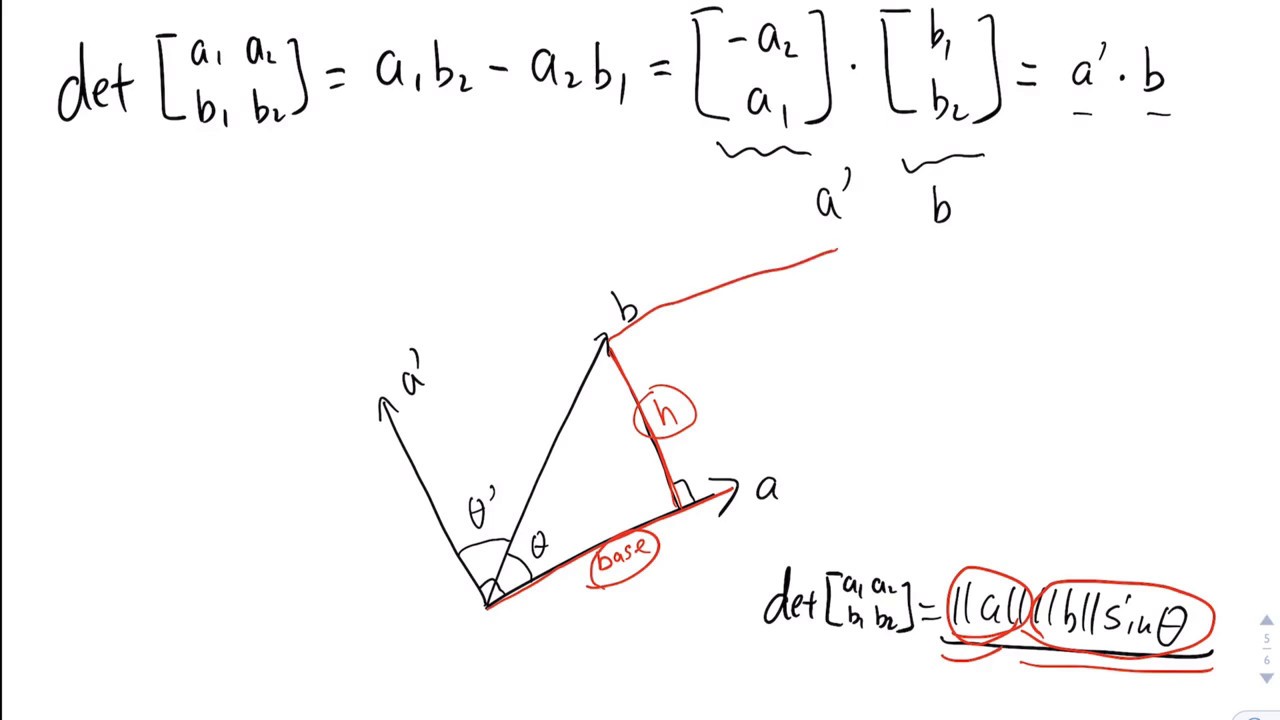 det [a₁ a₂ b₁ b₂] = a₁b₂ - a₂b₁ = [-a₂ a₁] · [b₁ b₂] = a′ · b
a′ b
b
a′
h
a
θ′
θ
base
det [a₁ a₂ b₁ b₂] = ||a|| ||b|| sin θ
5
6